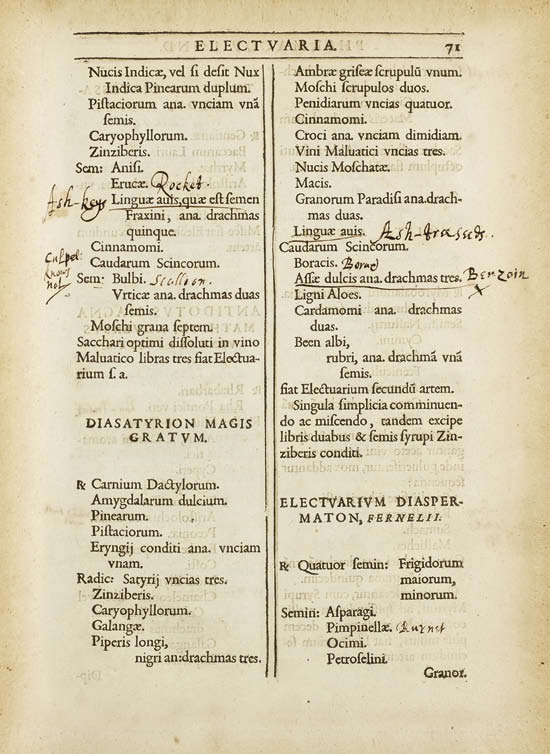 ELECTVARIA. 71
Nucis Indicæ, vel si desit Nux
Indica Pinearum duplum.
Pistaciorum ana. vnciam vnã
semis.
Caryophyllorum.
Zinziberis.
Sem: Anisi.
Erucæ. Rocket.
Ash-keys Linguæ auis, quæ est semen
Fraxini, ana. drachmas
quinque.
Cinnamomi.
Culpel: Caudarum Scincorum.
knows
not Sem: Bulbi. scallion.
Vrticæ ana. drachmas duas
semis.
Moschi grana septem.
Sacchari optimi dissoluti in vino
Maluatico libras tres fiat Electua-
rium s. a.
DIASATYRION MAGIS
GRATVM.
℞ Carnium Dactylorum.
Amygdalarum dulcium.
Pinearum.
Pistaciorum.
Eryngij conditi ana. vnciam
vnam.
Radic: Satyrij vncias tres.
Zinziberis.
Caryophyllorum.
Galangæ.
Piperis longi,
nigri an: drachmas tres.
Ambræ griseæ scrupulũ vnum.
Moschi scrupulos duos.
Penidiarum vncias quatuor.
Cinnamomi.
Croci ana. vnciam dimidiam.
Vini Maluatici vncias tres.
Nucis Moschatæ.
Macis.
Granorum Paradisi ana. drach-
mas duas.
Linguæ auis.
Caudarum Scincorum.
Boracis.
Assæ dulcis ana. drachmas tres. Benzoin
Ligni Aloes.
Cardamomi ana. drachmas
duas.
Been albi,
rubri, ana. drachmã vnã
semis.
fiat Electuarium secundũ artem.
Singula simplicia comminuen-
do ac miscendo, tandem excipe
libris duabus & semis syrupi Zin-
ziberis conditi.
ELECTVARIVM DIASPER-
MATON, FERNELII.
℞ Quatuor semin: Frigidorum
maiorum,
minorum.
Semin: Asparagi.
Pimpinellæ. Burnet
Ocimi.
Petroselini.
Granor.